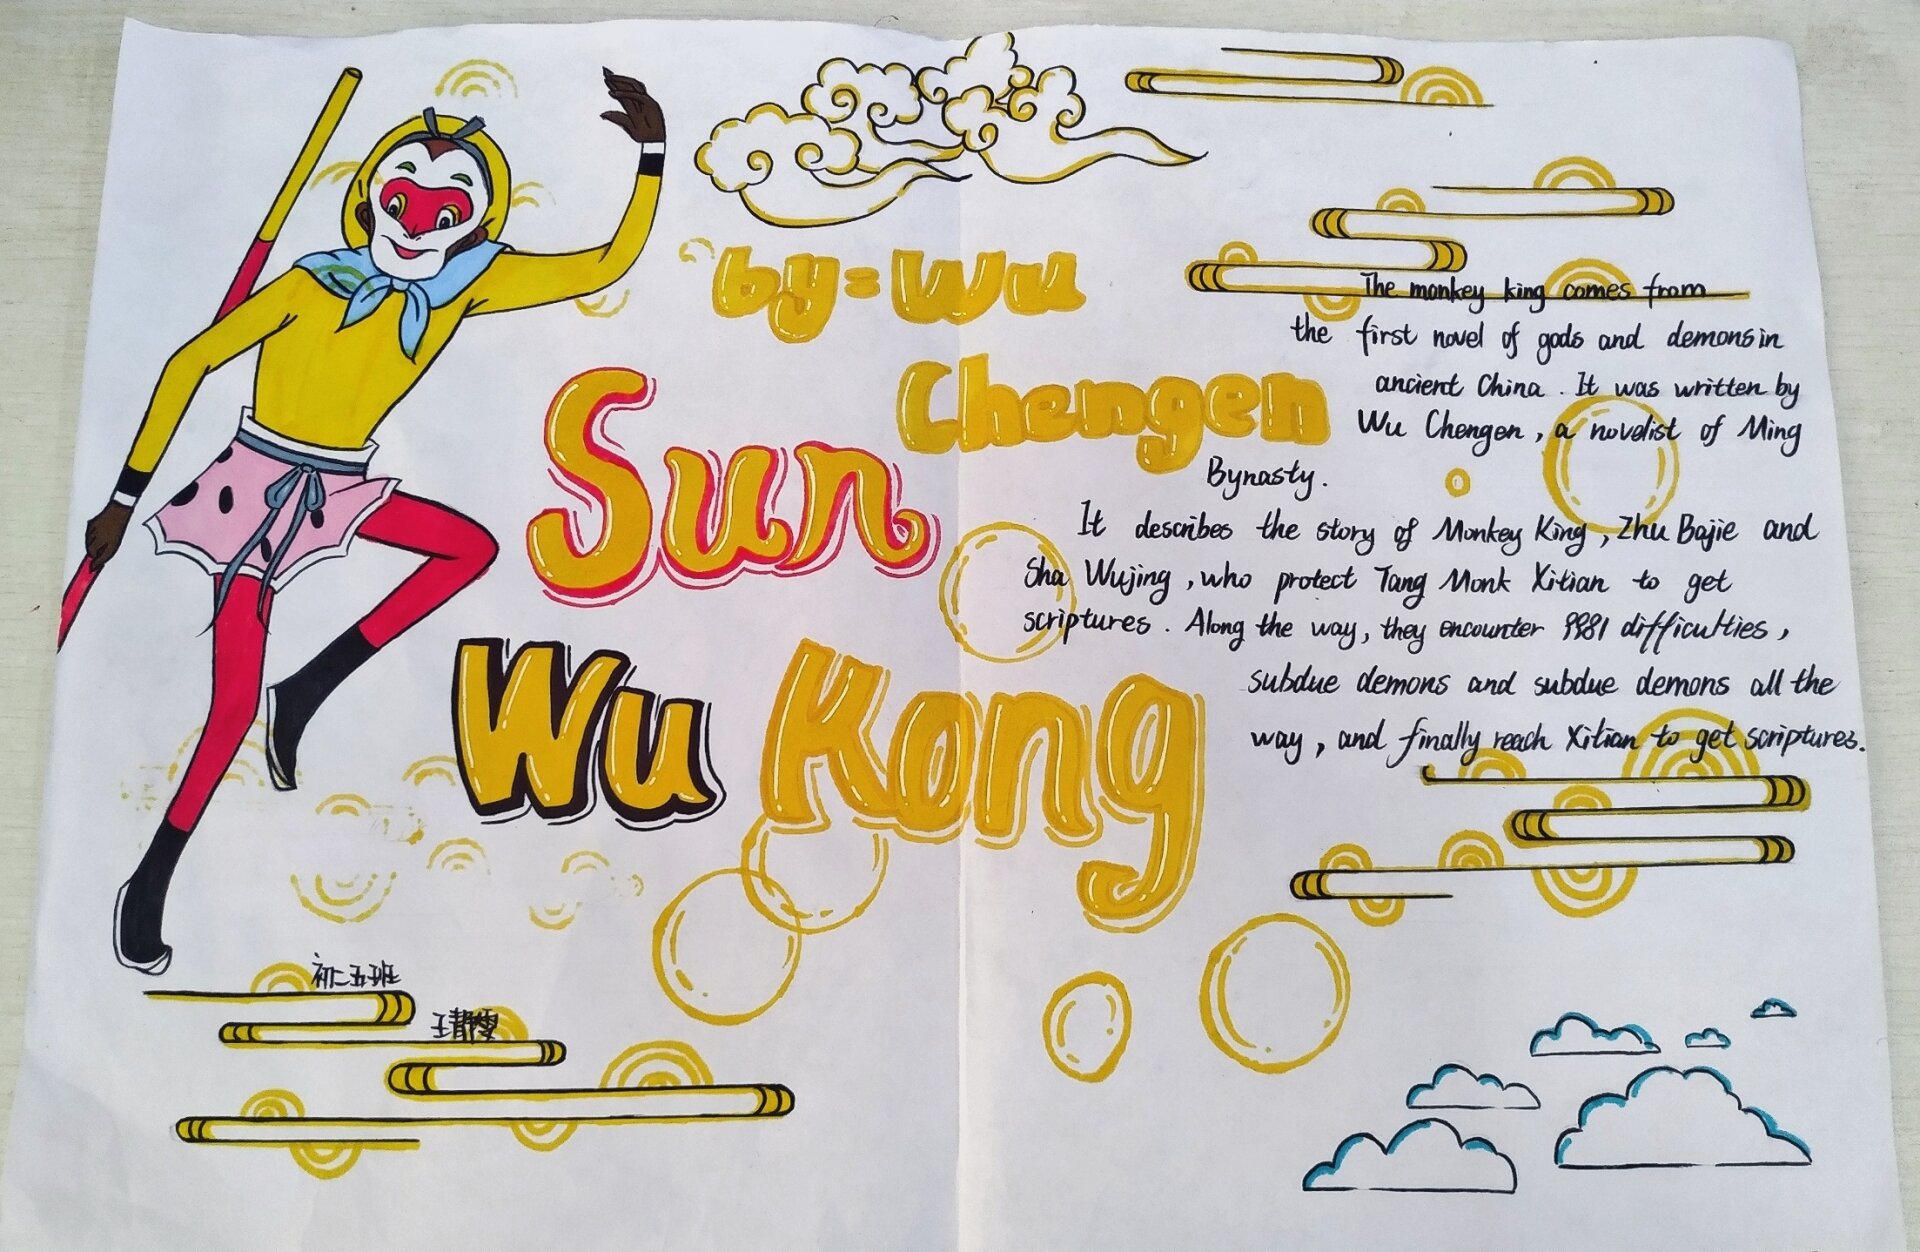 by: Wu
Chengen
Sun
Wu Kong
The monkey king comes from
the first novel of gods and demons in
ancient China. It was written by
Wu Chengen, a novelist of Ming
Bynasty.
It describes the story of Monkey King, Zhu Bajie and
Sha Wujing, who protect Tang Monk Xitian to get
scriptures. Along the way, they encounter 9981 difficulties,
subdue demons and subdue demons all the
way, and finally reach Xitian to get scriptures.
初二五班
王静